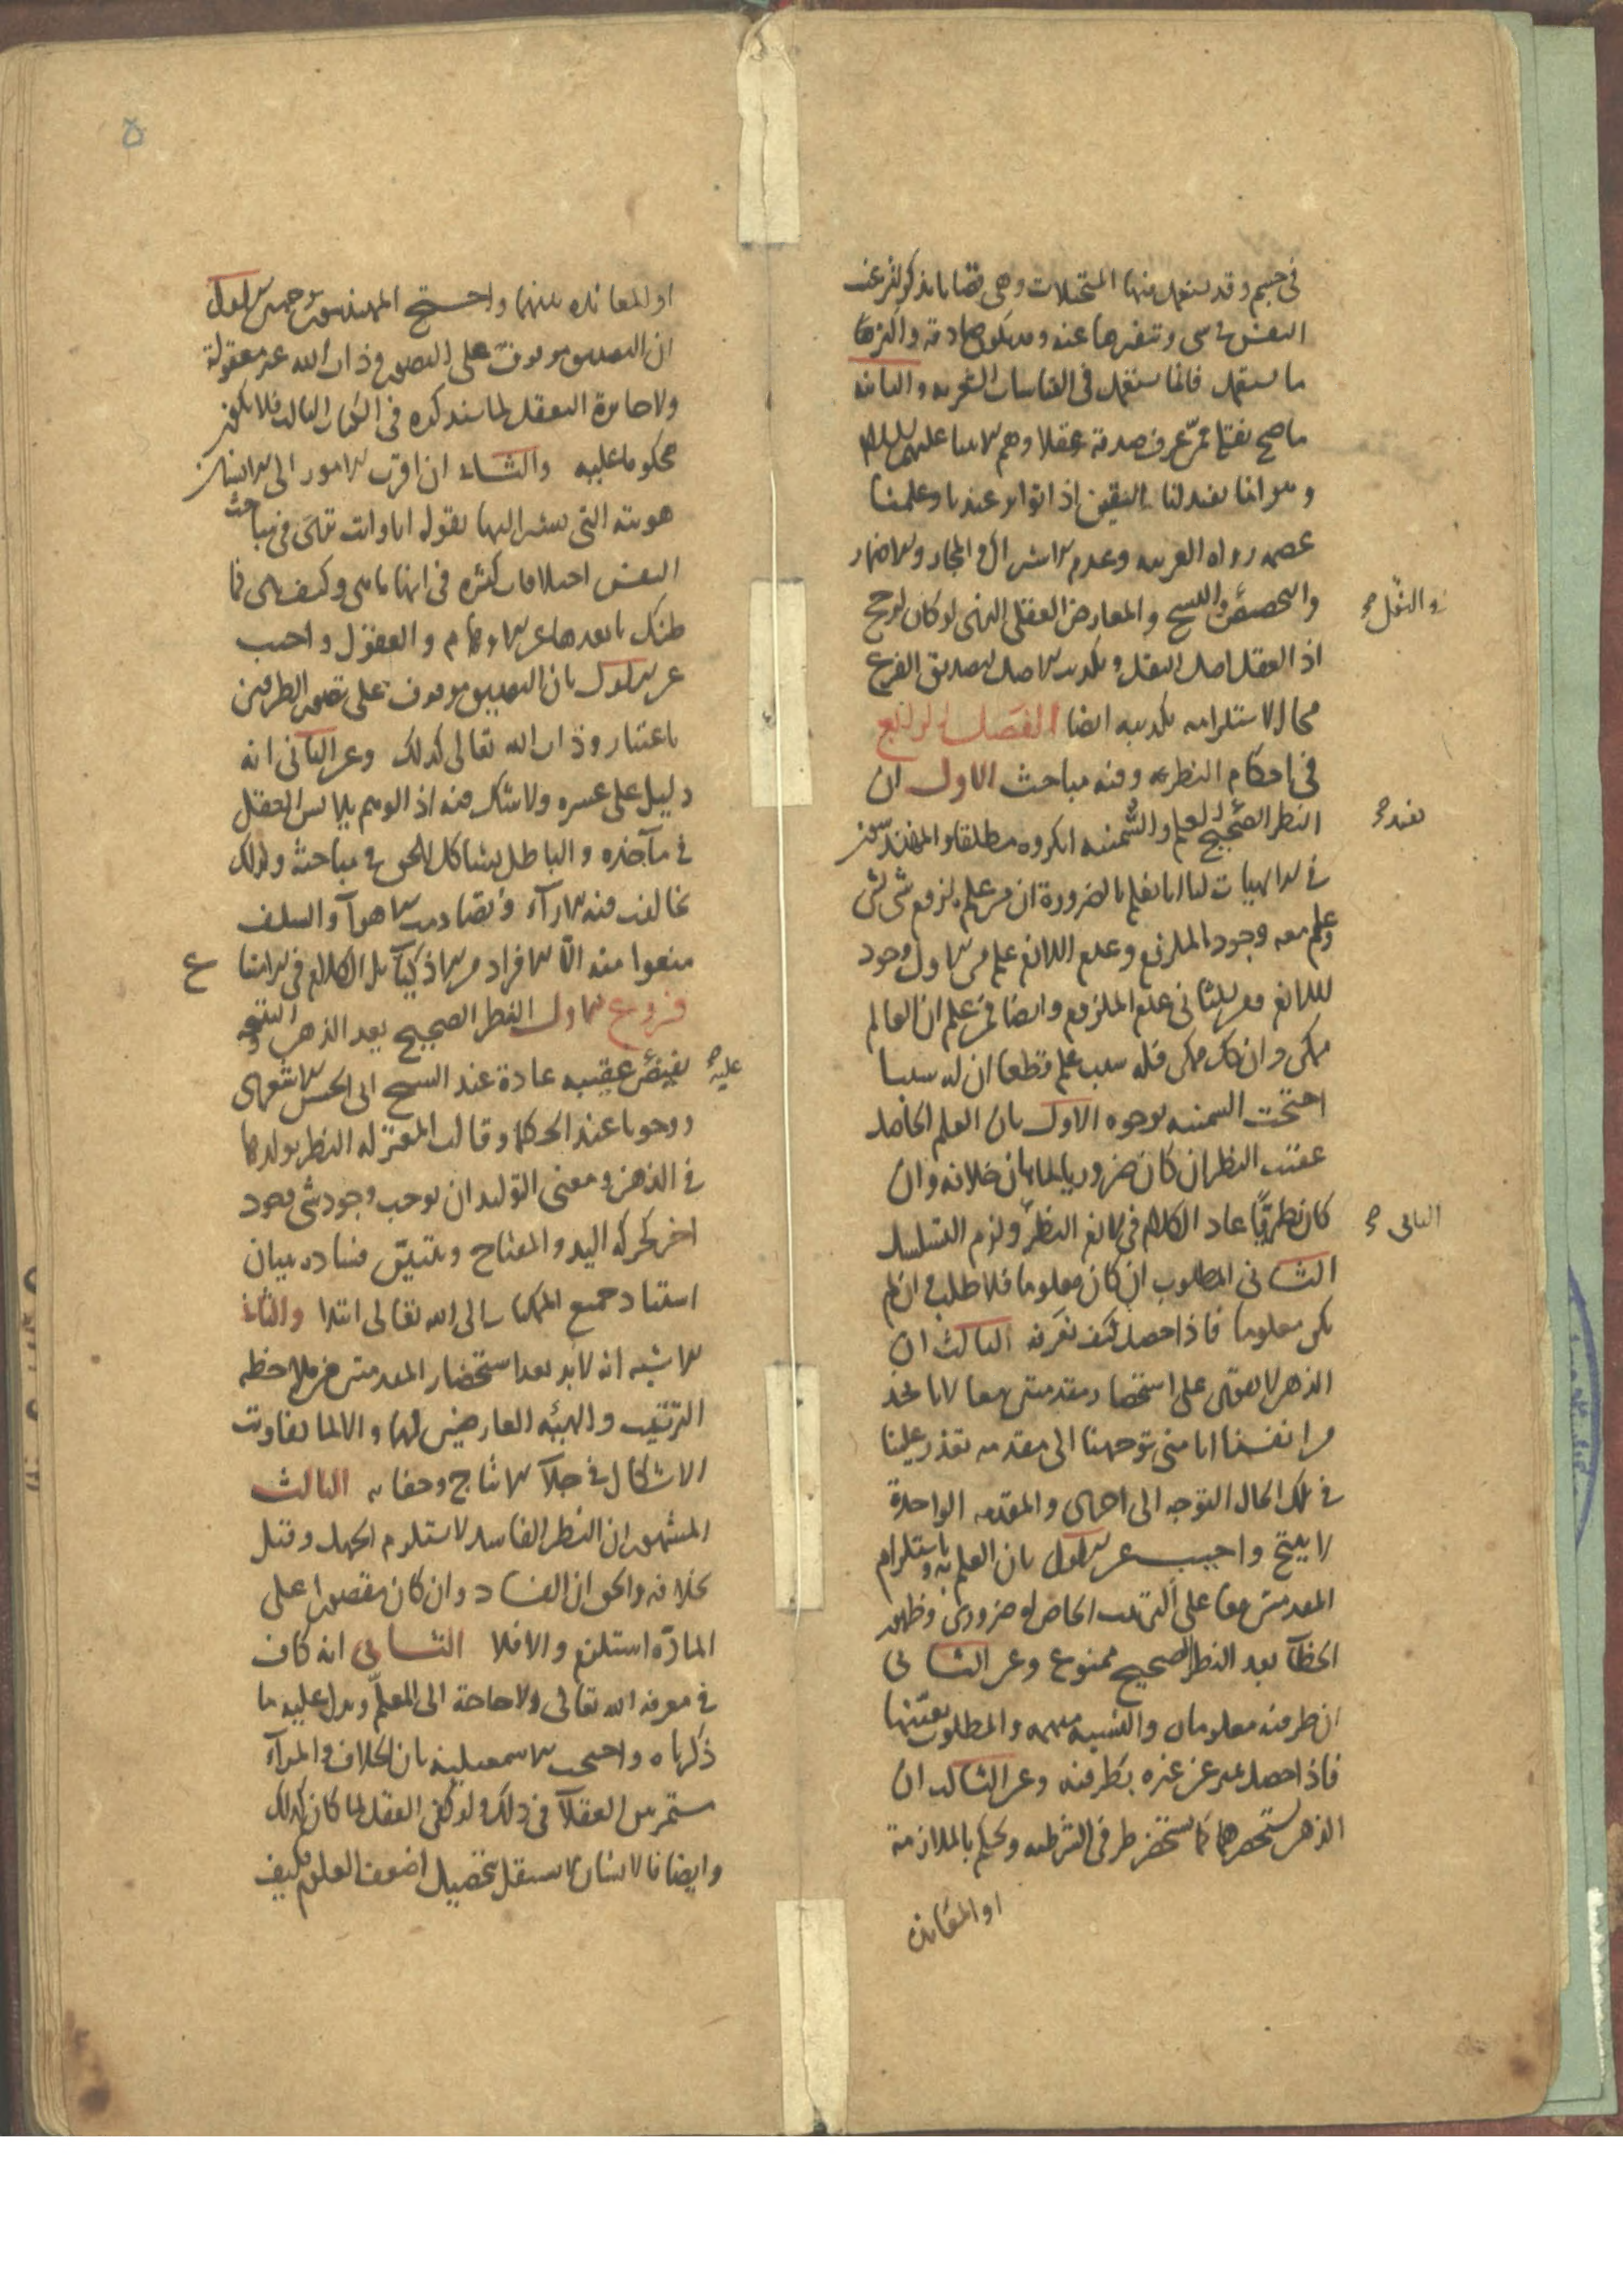 في جسم وقد يستعمل فيها المتخيلات وهي قضايا يذكر لترغيب
النفس في شى وتنفيرها عنه وقد يكون صادقة واكثرها
ما يستعمل فانما يستعمل في القياسات الشعرية والثانية
ما صح نقلها عمن عرف صدقه عقلا وهم الانبيا عليهم السلام
وهو انما يفيد لنا اليقين اذا تواتر عندنا وعلمنا
عصمة رواه العربية وعدم الاشتراك والمجاز والاضمار
والتخصيص والنسخ والمعارض العقلي الذى لو كان لرجح
والنقل
اذ العقل اصل النقل وتكذيب الاصل لتصديق الفرع
محال لاستلزامه تكذيبه ايضا الفصل الرابع
في احكام النظر وفيه مباحث الاول ان
النظر الصحيح العلم والسمنيه انكروه مطلقا والمهندسين
يفيد
في الالهيات لنا انا نعلم بالضرورة ان من علم لزوم شى لشى
وعلم معه وجود الملزوم وعدم اللازم علم من الاول وجود
اللازم ومن الثاني عدم الملزوم وايضا فمن علم ان العالم
ممكن وان كل ممكن فله سبب علم قطعا ان له سببا
احتجت السمنيه بوجوه الاول بان العلم الحاصل
عقيب النظر ان كان ضروريا لما بان خلافه وان
كان نظريا عاد الكلام في لازم النظر ولزم التسلسل
الثاني
الثانى المطلوب ان كان معلوما فلا طلب وان لم
يكن معلوما فاذا حصل كيف نعرفه الثالث ان
الذهن لا يقوى على استحضار مقدمتين معا لانا نجد
من انفسنا انا متى توجهنا الى مقدمه تعذر علينا
في تلك الحال التوجه الى اخرى والمقدمه الواحدة
لا ينتج واجيب عن الاول بان العلم به وباستلزام
المقدمتين معا على الترتيب الخاص له ضرورى وظهور
الخطآ بعد النظر الصحيح ممنوع وعن الثانى
ان طرفيه معلومان والنسبه مبهمه والمطلوب تعينها
فاذا حصل تميز عن غيره بطرفيه وعن الثالث ان
الذهن يستحضرهما كما يستحضر طرفى الشرطيه ويحكم بالملازمة
او المعاندة
او المعانده بينهما واحتج المهندسون بوجهين الاول
ان التصديق موقوف على التصور وذات الله غير معقولة
ولا جايزة التعقل لما سنذكره في الكتاب الثالث فلا يكون
محكوما عليه والثانى ان اقرب الامور الى الانسان
هويته التى يشير اليها بقوله انا وانت ترى في مباحث
النفس اختلافات كثيره في انها ما هى وكيف هى فما
ظنك بابعدها عن الاوهام والعقول واجيب
عن الاول بان التصديق موقوف على تصور الطرفين
باعتبار وذات الله تعالى كذلك وعن الثانى انه
دليل على عسره ولا شك فيه اذ الوهم يلابس العقل
في مآخذه والباطل يشاكل الحق في مباحثه ولذلك
تخالفت فيه الارآء وتصادمت الاهوآ والسلف
منعوا منه الا الافراد من الاذكيآء بل الكلام في الامتنا
ع
فروع الاول النظر الصحيح يعد الذهن والنتيجه
تفيض عقيبه عادة عند الشيخ ابى الحسن الاشعرى
عليه
ووجوبا عند الحكما وقالت المعتزله النظر يولدها
في الذهن ومعنى التوليد ان يوجب وجود شى وجود
اخر كحركه اليد والمفتاح ويتبين فساده ببيان
استناد جميع الممكنات الى الله تعالى ابتدا والثانى
الاشبه انه لابد بعد استحضار المقدمتين من ملاحظه
الترتيب والهيئه العارضين لهما والا لما تفاوتت
الاشكال في جلآ الانتاج وخفائه الثالث
المشهور ان النظر الفاسد لا يستلزم الجهل وقيل
بخلافه والحق ان الفساد وان كان مقصورا على
المادة استلزم والا فلا الثانى انه كاف
في معرفه الله تعالى ولا حاجة الى المعلم ويدل عليه ما
ذكرناه واحتجت الاسمعيليه بان الخلاف والمرآء
مستمر بين العقلآ في ذلك ولو كفى العقل لما كان كذلك
وايضا فالانسان لا يستقل بتحصيل اضعف العلوم فكيف